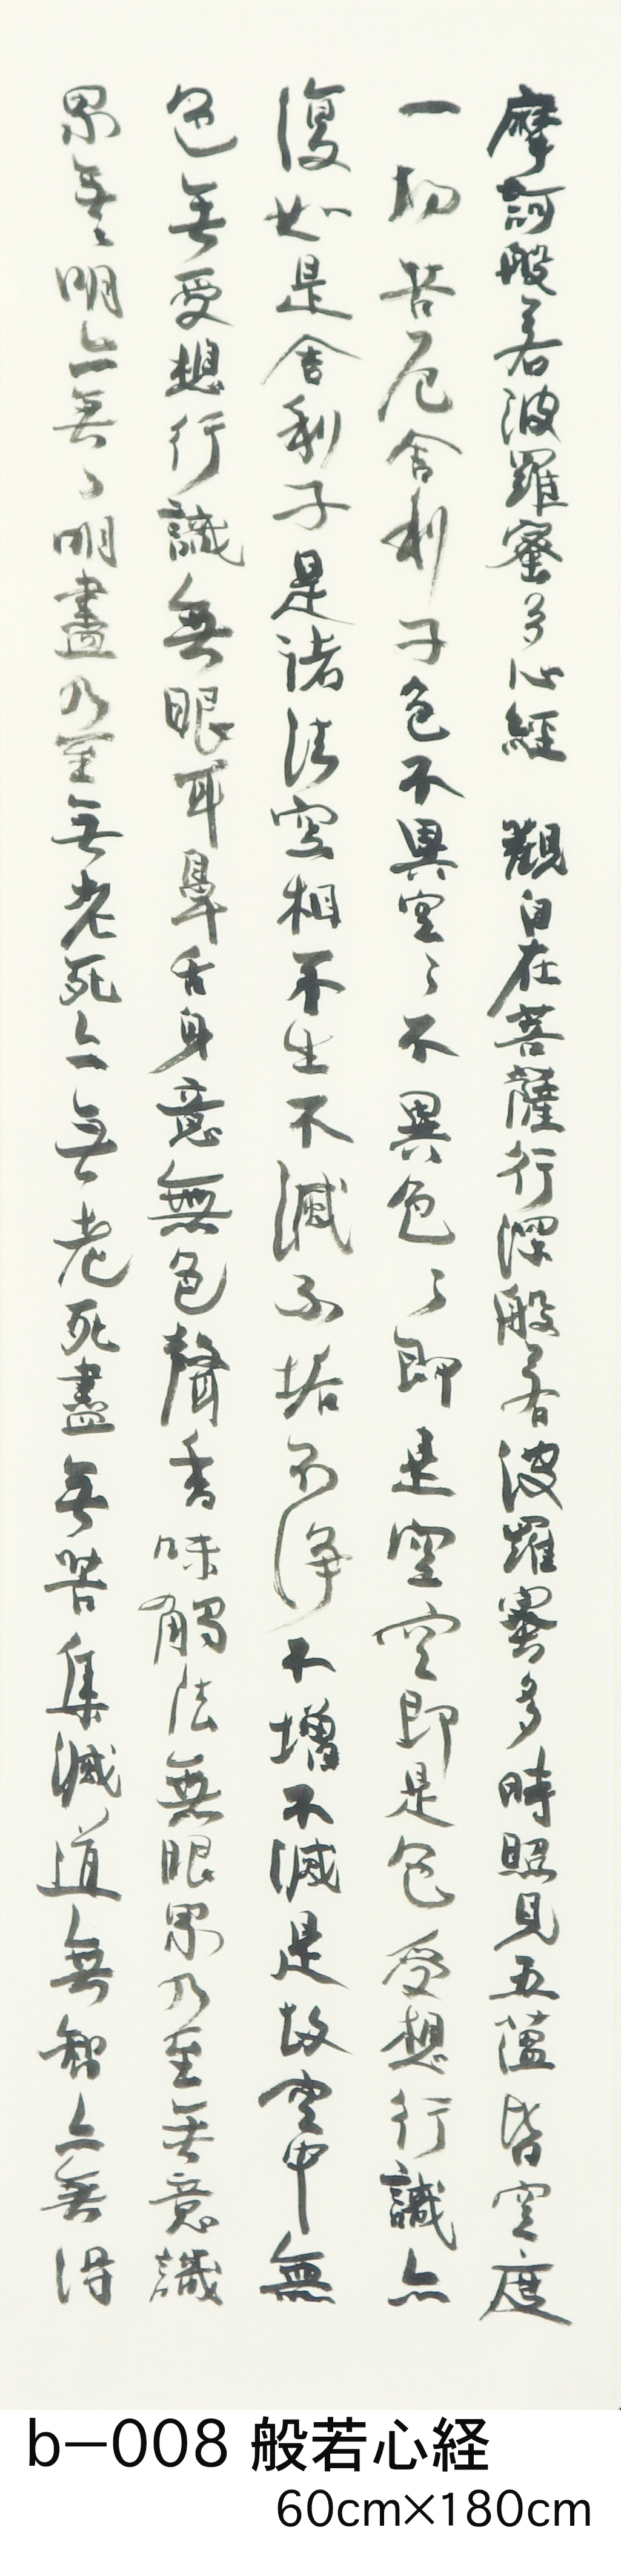 摩訶般若波羅蜜多心經 觀自在菩薩行深般若波羅蜜多時照見五蘊皆空度
一切苦厄舍利子色不異空々不異色々即是空空即是色受想行識亦
復如是舍利子是諸法空相不生不滅不垢不淨不增不減是故空中無
色無受想行識無眼耳鼻舌身意無色聲香味觸法無眼界乃至無意識
界無無明亦無々明盡乃至無老死亦無老死盡無苦集滅道無智亦無得
b−008 般若心経
60cm×180cm